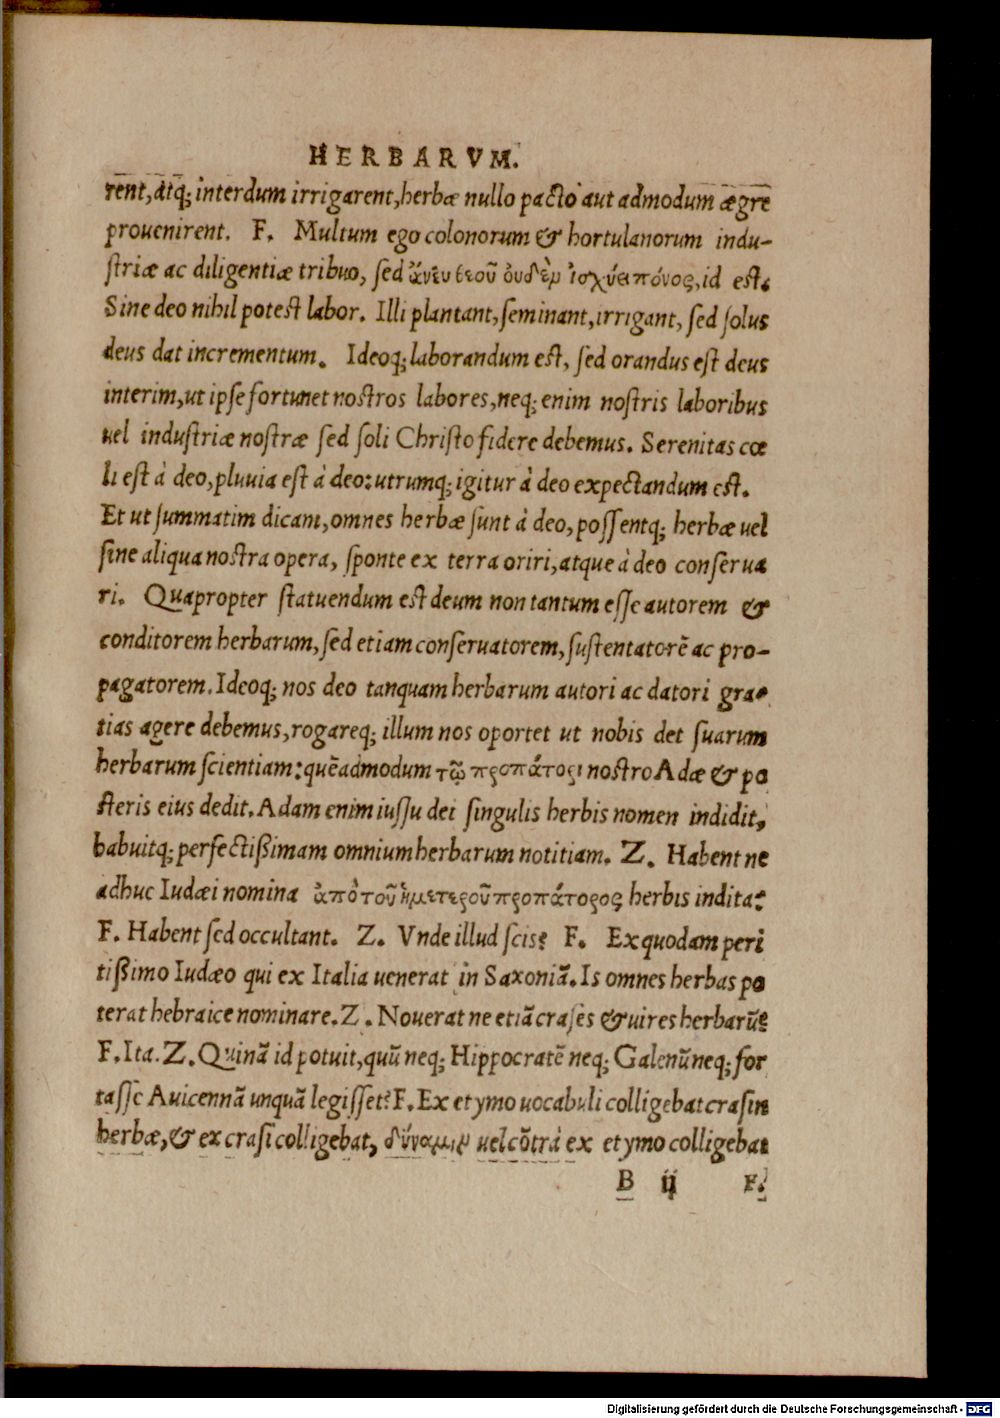 HERBARVM.
rent, atq; interdum irrigarent, herbæ nullo pacto aut admodum ægre
prouenirent. F. Multum ego colonorum & hortulanorum indu-
ſtriæ ac diligentiæ tribuo, ſed ἄνευ θεοῦ ουδὲν ἰσχύει πόνος, id est.
Sine deo nihil potest labor. Illi plantant, ſeminant, irrigant, ſed ſolus
deus dat incrementum. Ideoq; laborandum est, ſed orandus eſt deus
interim, ut ipſe fortunet nostros labores, neq; enim noſtris laboribus
uel induſtriæ noſtræ ſed ſoli Chriſto fidere debemus. Serenitas cœ
li eſt à deo, pluuia eſt à deo: utrumq; igitur à deo expectandum est.
Et ut ſummatim dicam, omnes herbæ ſunt à deo, poſſentq; herbæ uel
ſine aliqua noſtra opera, ſponte ex terra oriri, atque à deo conſerua
ri. Quapropter ſtatuendum est deum non tantum eſſe autorem &
conditorem herbarum, ſed etiam conſeruatorem, ſuſtentatorẽ ac pro-
pagatorem. Ideoq; nos deo tanquam herbarum autori ac datori gra-
tias agere debemus, rogareq; illum nos oportet ut nobis det ſuarum
herbarum ſcientiam: quẽadmodum τῷ προπάτορι nostro Adæ & po
ſteris eius dedit. Adam enim iuſſu dei ſingulis herbis nomen indidit,
habuitq; perfectißimam omnium herbarum notitiam. Z. Habent ne
adhuc Iudæi nomina ἀπὸ τοῦ ἡμετεροῦ προπάτορος herbis indita?
F. Habent ſed occultant. Z. Vnde illud ſcis? F. Ex quodam peri
tißimo Iudæo qui ex Italia uenerat in Saxoniã. Is omnes herbas po
terat hebraice nominare. Z. Nouerat ne etiã craſes & uires herbarũ?
F. Ita. Z. Quinã id potuit, quũ neq; Hippocratẽ neq; Galenũ neq; for
taſſe Auicennã unquã legiſſet? F. Ex etymo uocabuli colligebat craſin
herbæ, & ex craſi colligebat, δύναμιν uel cõtrà ex etymo colligebat
B ij F.
Digitalisierung gefördert durch die Deutsche Forschungsgemeinschaft - DFG